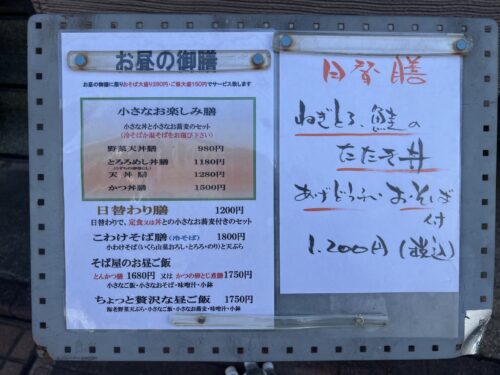 お昼の御膳
お昼の御膳に限りおそば大盛り280円・ご飯大盛150円でサービス致します
小さなお楽しみ膳
小さな丼と小さなお蕎麦のセット
(冷そばか温そばをお選び下さい)
野菜天丼膳 980円
とろろめし丼膳 1180円
天丼膳 1280円
かつ丼膳 1500円
日替わり膳 1200円
日替わりで、定食又は丼との小さなお蕎麦付きのセット
こわけそば膳(冷そば) 1800円
小わけそば(いくら山菜おろし・とろろ・のり)と天ぷら
そば屋のお昼ご飯
とんかつ膳 1680円 又は かつの卵とじ煮膳1750円
小さなご飯・小さなおそば・味噌汁・小鉢
ちょっと贅沢な昼ご飯 1750円
海老野菜天ぷら・小さなご飯・小さなお蕎麦・味噌汁・小鉢
日替膳
ねぎとろ、鮭の
たたき丼
あげどうふ、おそば
付
1.200円(税込)